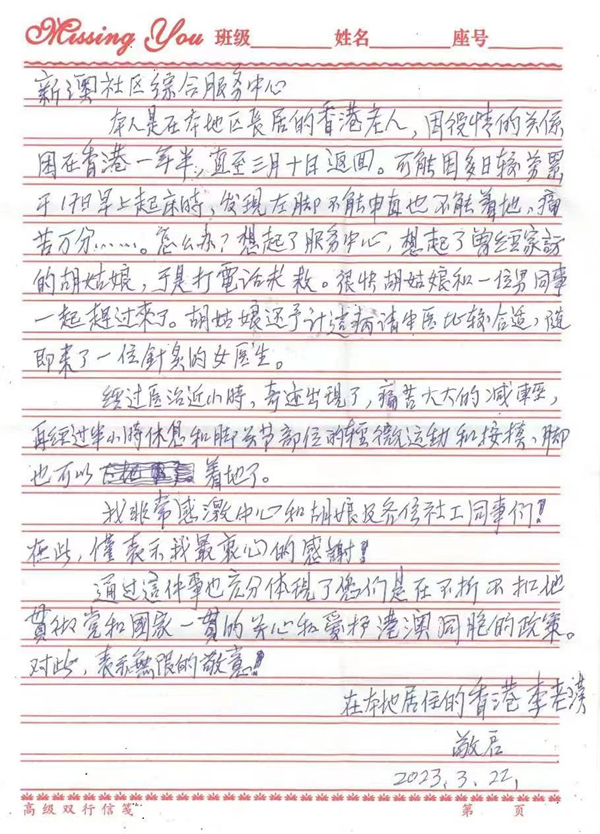 Missing You 班级 姓名 座号
新澳社区綜合服务中心
本人是在本地区長居的香港老人,因役情的关係
困在香港一年半,直至三月十日返回。可能因多日较劳累
于17日早上起床时,发现左脚不能申直也不能着地,痛
苦万分……。怎么办?想起了服务中心,想起了曾经家訪
的胡姑娘,于是打電话求救。很快胡姑娘和一位男同事
一起趕过來了。胡姑娘还予计這病请中医比较合适,随
即来了一位針灸的女医生。
经过医治近小時,奇迹出现了,痛苦大大的减輕,
再經过半小時休息和脚关节部位的輕微运動和按摸,脚
也可以 着地了。
我非常感激中心和胡娘及各位社工同事们!
在此,僅表示我最衷心的感謝!
通过這件事也充分体現了您们是在不折不扣地
貫彻党和國家一貫的关心和愛护港澳同胞的政策。
对此,表示無限的敬意!
在本地居住的香港李老漢
敬启
2023.3.22,
高级双行信笺 第 页